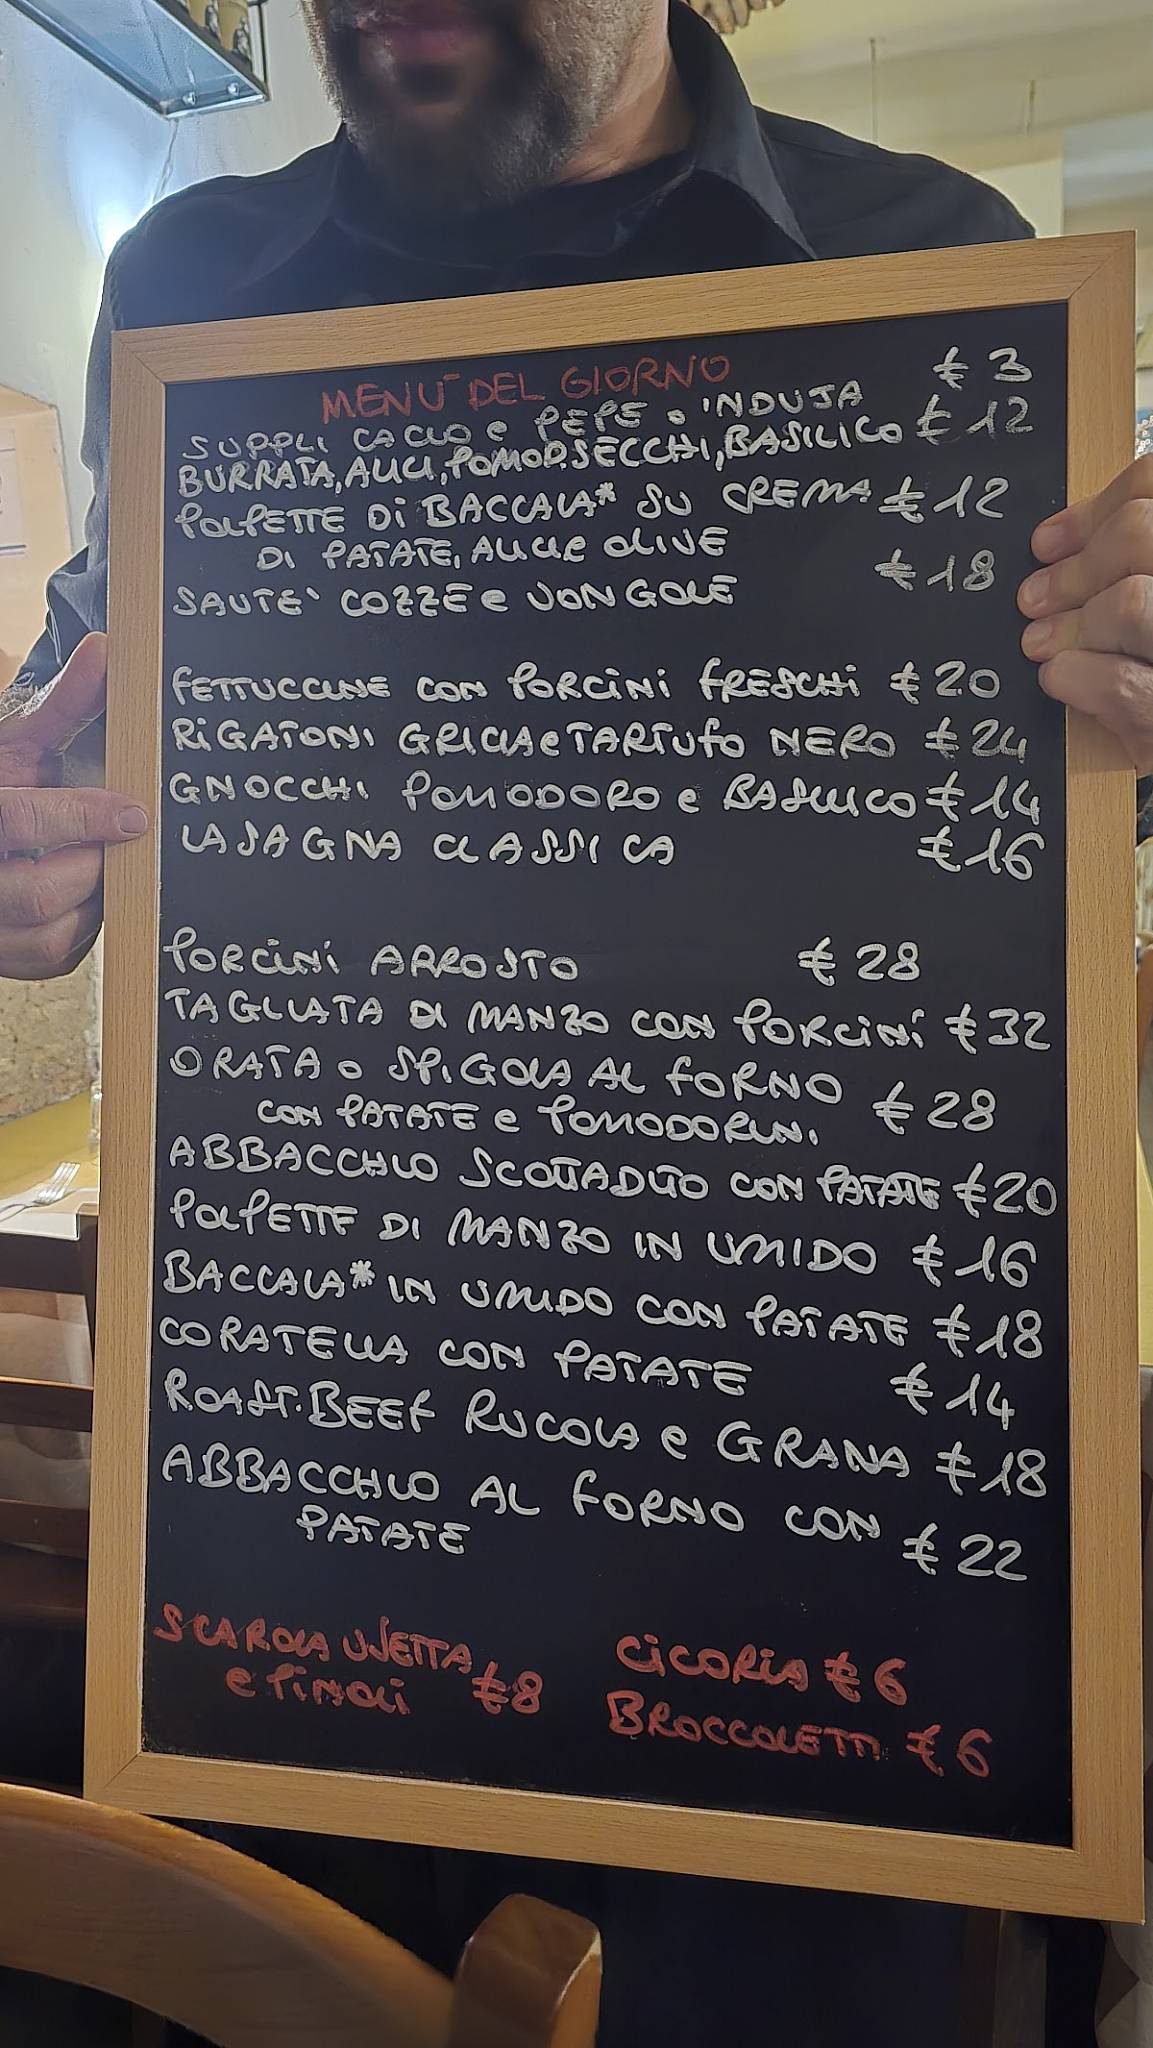 MENÙ DEL GIORNO
SUPPLI CACIO e PEPE o 'NDUJA € 3
BURRATA, ALICI, POMOD. SECCHI, BASILICO € 12
POLPETTE DI BACCALA* SU CREMA € 12
DI PATATE, ALICI e OLIVE
SAUTE' COZZE e VONGOLE € 18
FETTUCCINE CON PORCINI FRESCHI € 20
RIGATONI GRICIA e TARTUFO NERO € 24
GNOCCHI POMODORO e BASILICO € 14
LASAGNA CLASSICA € 16
PORCINI ARROSTO € 28
TAGLIATA DI MANZO CON PORCINI € 32
ORATA o SPIGOLA AL FORNO
CON PATATE e POMODORINI € 28
ABBACCHIO SCOTTADITO CON PATATE € 20
POLPETTE DI MANZO IN UMIDO € 16
BACCALA* IN UMIDO CON PATATE € 18
CORATELLA CON PATATE € 14
ROAST-BEEF RUCOLA e GRANA € 18
ABBACCHIO AL FORNO CON
PATATE € 22
SCAROLA UVETTA
e PINOLI € 8
CICORIA € 6
BROCCOLETTI € 6